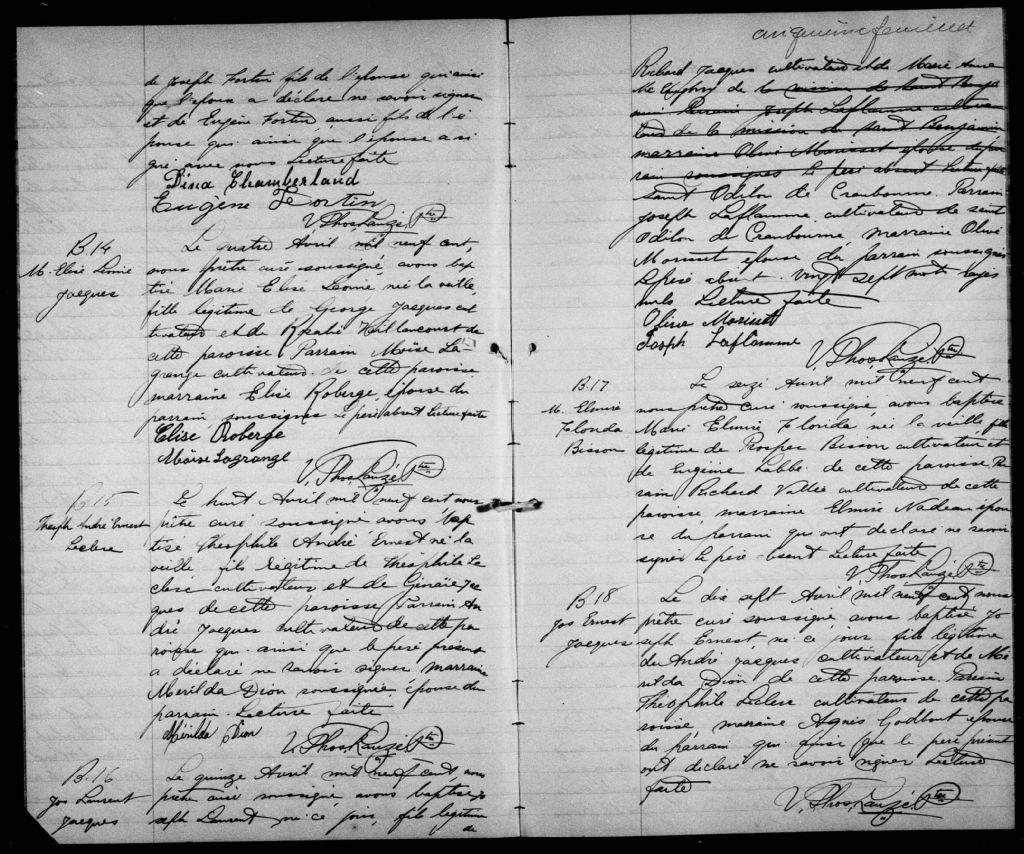 de Joseph Fortin fils de l'épouse qui ainsi
que l'époux a déclaré ne savoir signer
et de Eugène Fortin aussi fils de l'é
pouse qui ainsi que l'épouse a si
gné avec nous Lecture faite
Dina Chamberland
Eugène Fortin
V. Phos. Ptre
B. 14
M. Elise Léonie
Jacques
Le quatre Avril mil neuf cent,
nous prêtre curé soussigné, avons bap
tisé Marie Elise Léonie née la veille,
fille légitime de George Jacques cul
tivateur et de Vaillancourt de
cette paroisse Parrain Moïse La
grange cultivateur de cette paroisse
marraine Elise Roberge, épouse du
parrain soussignés Le père absent Lecture faite
Elise Roberge
Moïse Lagrange
V. Phos. Ptre
B. 15
Théoph André Ernest
Leclerc
Le huit Avril mil neuf cent, nous
prêtre curé soussigné avons bap
tisé Théophile André Ernest né la
veille fils légitime de Théophile Le
clerc cultivateur et de Jac
ques de cette paroisse Parrain An
dré Jacques cultivateur de cette pa
roisse qui ainsi que le père présent
a déclaré ne savoir signer, marraine
Merilda Dion soussignée épouse du
parrain. Lecture faite
Mérilda Dion
V. Phos. Ptre
B. 16
Jos Laurent
Jacques
Le quinze Avril mil neuf cent, nous
prêtre curé soussigné avons baptisé Jo
seph Laurent né ce jour, fils légitime
de
cinquième feuillet
Richard Jacques cultivateur et de Marie Anne
de la mission de Saint Benja
min Parrain Joseph Laflamme cultiva
teur de la mission de Saint Benjamin
marraine Olive Morisset épouse du par
rain soussignés Le père absent Lecture faite
Saint Odilon de Cranbourne. Parrain
Joseph Laflamme cultivateur de saint
Odilon de Cranbourne, marraine Olive
Morisset épouse du parrain soussignés
Le père absent. Vingt sept mots rayés
nuls Lecture faite
Olive Morisset
Joseph Laflamme
V. Phos. Ptre
B. 17
M. Elmire
Florida
Bisson
Le seize Avril mil neuf cent
nous prêtre curé soussigné, avons baptisé
Marie Elmire Florida née la veille, fille
légitime de Prosper Bisson cultivateur et
de Eugénie Labbé de cette paroisse. Par
rain Richard Vallée cultivateur de cette
paroisse, marraine Elmire Nadeau épou
se du parrain qui ont déclaré ne savoir
signer le père absent Lecture faite
V. Phos. Ptre
B. 18
Jos Ernest
Jacques
Le dix sept Avril mil neuf cent, nous
prêtre curé soussigné, avons baptisé Jo
seph Ernest, né ce jour fils légitime
de André Jacques cultivateur et de Mé
rilda Dion de cette paroisse. Parrain
Théophile Leclerc cultivateur de cette pa
roisse marraine Agnès Godbout épouse
du parrain qui ainsi que le père présent
ont déclaré ne savoir signer Lecture
faite
V. Phos. Ptre